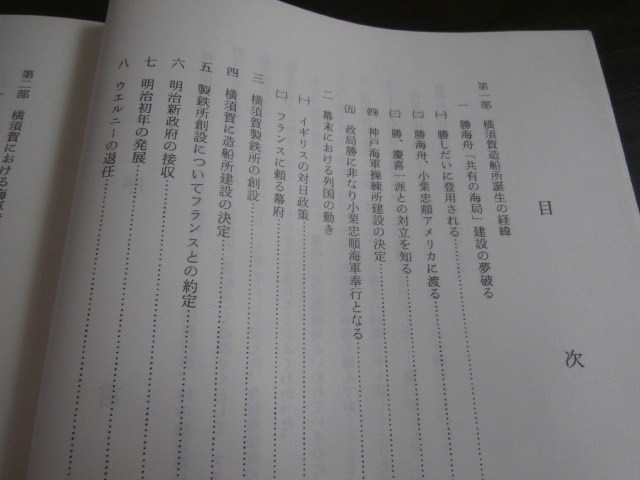 目次
第一部 横須賀造船所誕生の経緯
一 勝海舟「共有の海局」建設の夢破る
㈠ 勝しだいに登用される
㈡ 勝海舟、小栗忠順アメリカに渡る
㈢ 勝、慶喜一派との対立を知る
㈣ 神戸海軍操練所建設の決定
㈤ 政局勝に非なり小栗忠順海軍奉行となる
二 幕末における列国の動き
㈠ イギリスの対日政策
㈡ フランスに頼る幕府
三 横須賀製鉄所の創設
四 横須賀に造船所建設の決定
五 製鉄所創設についてフランスとの約定
六 明治新政府の接収
七 明治初年の発展
八 ウエルニーの退任
第二部 横須賀における海軍